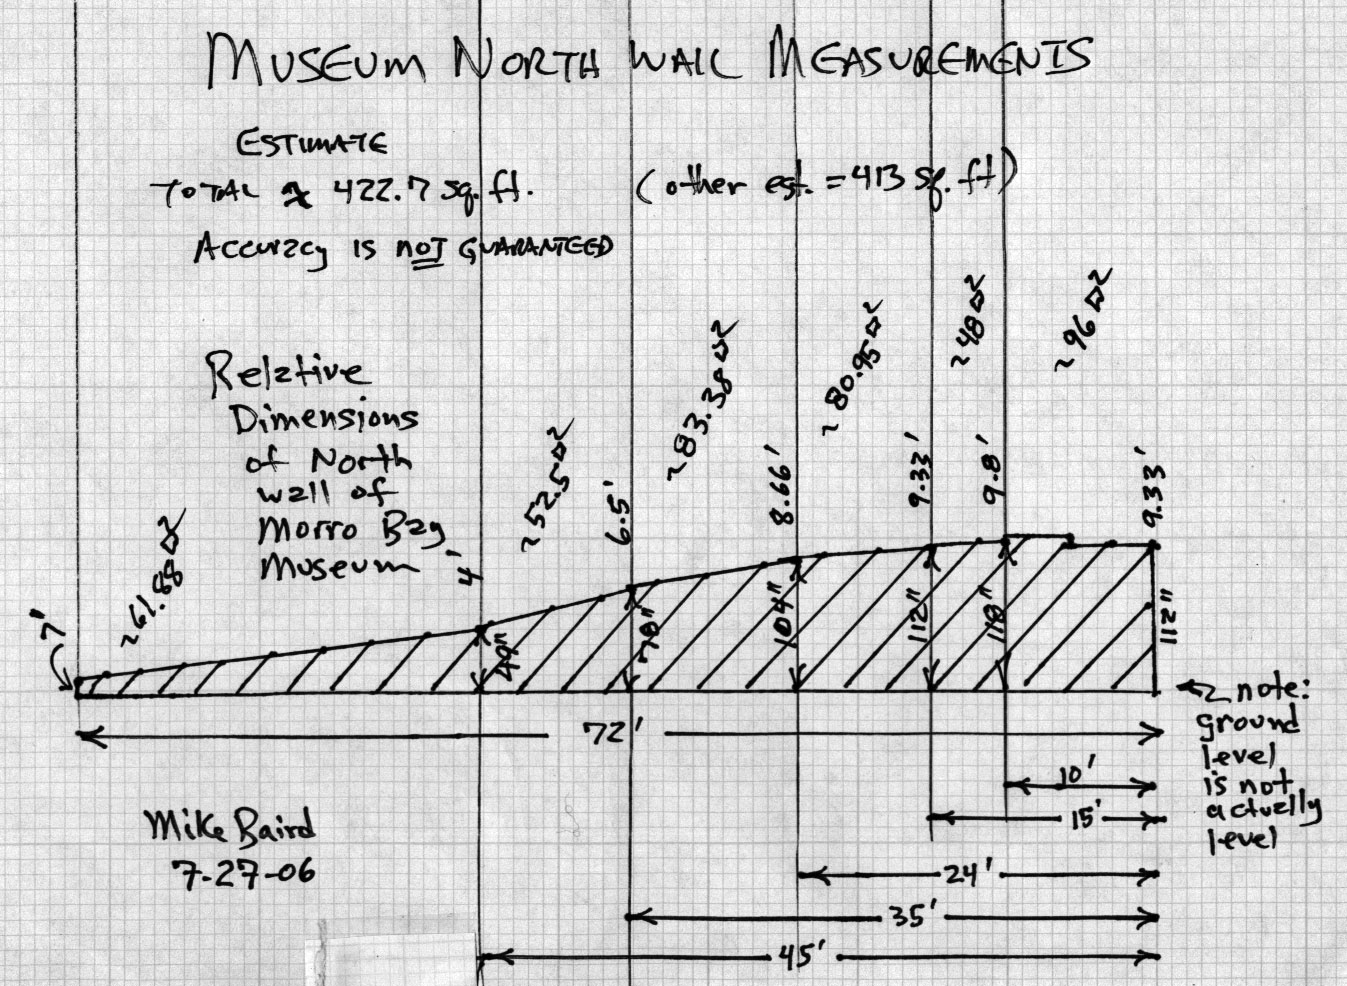 MUSEUM NORTH WALL MEASUREMENTS
ESTIMATE
TOTAL ≈ 422.7 sq. ft.
(other est. = 413 sq. ft)
Accuracy IS NOT GUARANTEED
Relative
Dimensions
of North
wall of
Morro Bay
Museum
~61.88 □2
~52.5 □2
~83.38 □2
~80.95 □2
~48 □2
~96 □2
7'
4'
6.5'
8.66'
9.33'
9.8'
9.33'
78"
104"
112"
118"
112"
72'
note:
ground
level
is not
actually
level
10'
15'
24'
35'
45'
Mike Baird
7-27-06